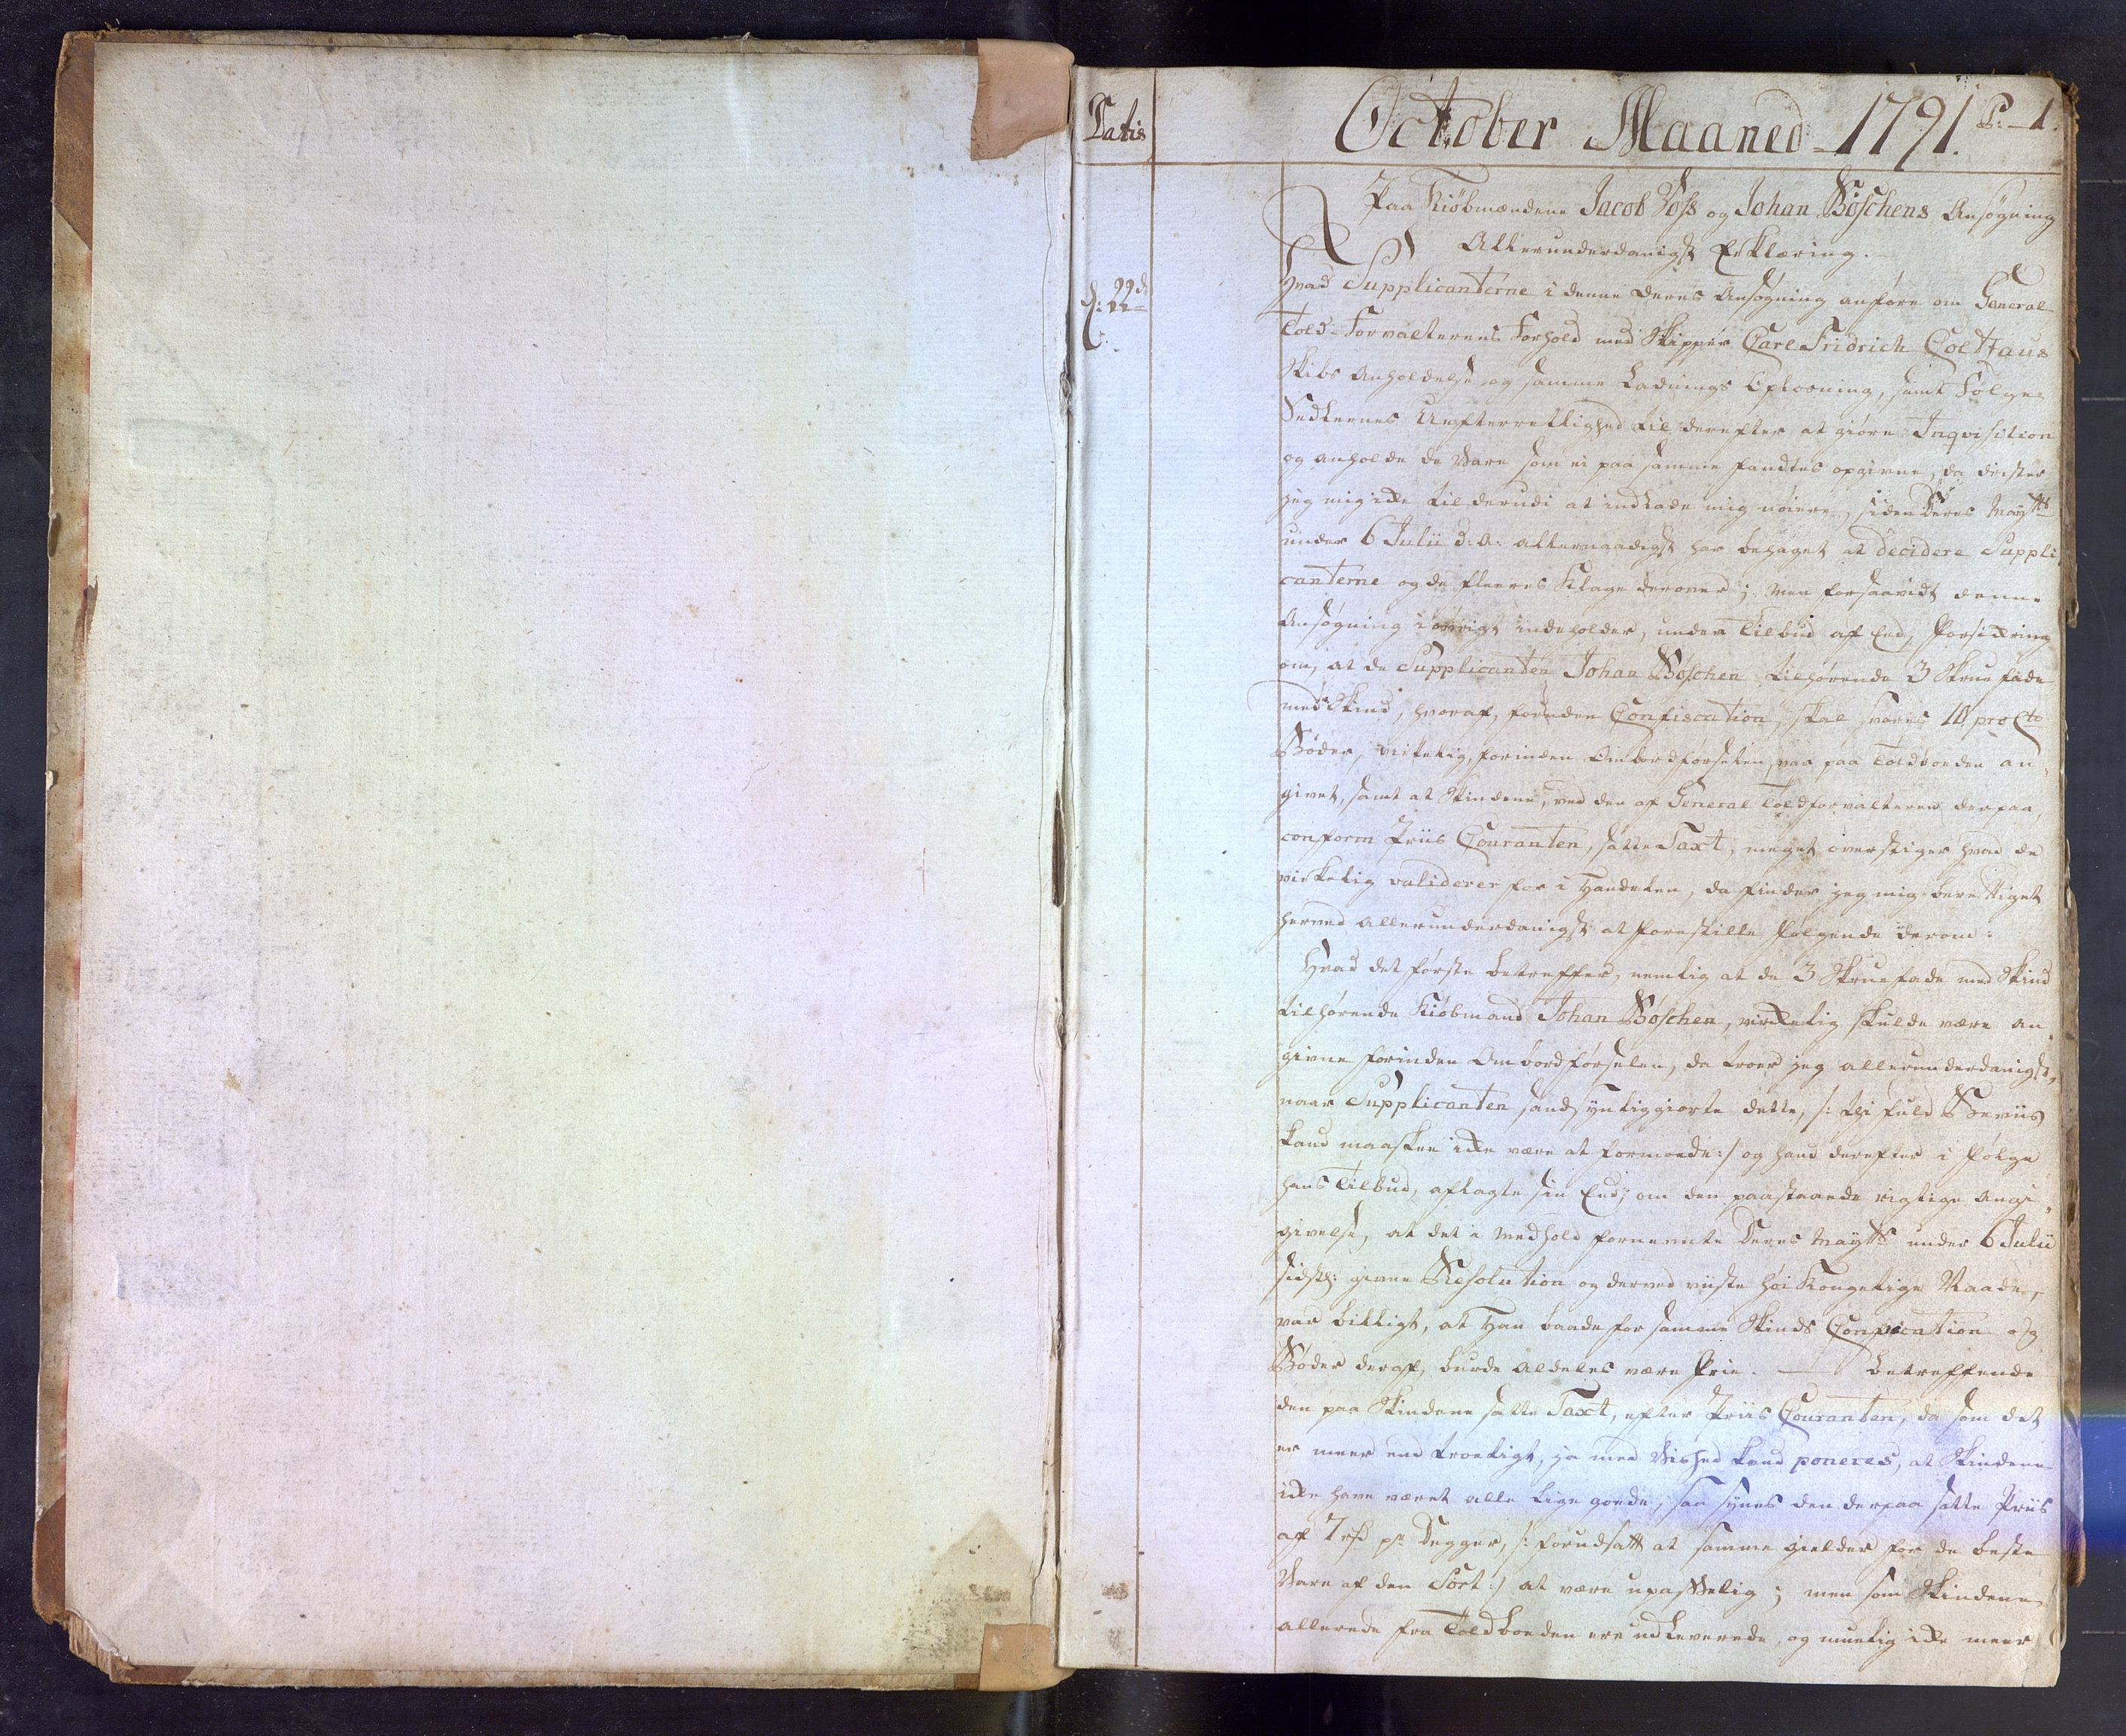 Datis
October Maaned 1791. P: 1.
Paa Kiøbmændene Jacob Foss og Johan Böschens Ansøgning
Allerunderdanigst Erklæring.
d: 22de
Hvad Supplicanterne i denne deres Ansøgning anføre om General
Told-Forvalterens Forhold med Skipper Carl Fridrich Coltzaus
Skibs Anholdelse og samme Ladnings Oplosning, samt Følge-
Sedlernes Uefterrettlighed til derefter at giøre Inqvisition
og anholde de Vare som ei paa samme fandtes opgivne, da drister
jeg mig ikke til derudi at indlade mig nøiere, siden Deres Maytts
under 6 Julii d: A: allernaadigst har behaget at decidere Suppli-
canterne og de fleeres Klage derover; men forsaavidt denne
Ansøgning iøvrigt indeholder, under Tilbud af Eed, Forsikring
om, at de Supplicanten Johan Böschen tilhørende 3 Skruefade
med Skind, hvoraf, foruden Confiscation, skal svares 10 pro Cto
Bøder, virkelig, forinden Ombordførselen, var paa Toldboden an-
givet, samt at Skindene, ved den af General Toldforvalteren derpaa,
conform Priis Couranten, satte Taxt, meget overstiger hvad de
virkelig validerer for i Handelen, da finder jeg mig berettiget
herved allerunderdanigst at forestille følgende derom:
Hvad det første betreffer, nemlig at de 3 Skruefade med Skind
tilhørende Kiøbmand Johan Böschen, virkelig skulde være an-
givne forinden Ombordførselen, da troer jeg allerunderdanigst,
naar Supplicanten sandsynliggiorte dette, /: thi fuld Beviis
kand maaskee ikke være at formode :/ og hand derefter i følge
hans Tilbud, aflagte sin Eed om den paastaaende rigtige angi-
givelse, at det i medhold fornevnte Deres Maytts under 6 Julii
sidstl: givne Resolution og derved viiste høi Kongelige Naade,
var billigt, at Han baade for samme Skinds Confication og
Bøder deraf, burde aldeles være frie. — Betreffende
den paa Skindene satte Taxt, efter Priis Couranten, da som det
er meer end troeligt, ja med Vished kand poneres, at Skindene
ikke have været alle lige goede, saa synes den derpaa satte Priis
af 7 rd pr Degger, /: forudsatt at samme gielder for de beste
Vare af den Sort :/ at være upasselig; men som Skindene
allerede fra Toldboden ere udleverede, og muelig ikke meer